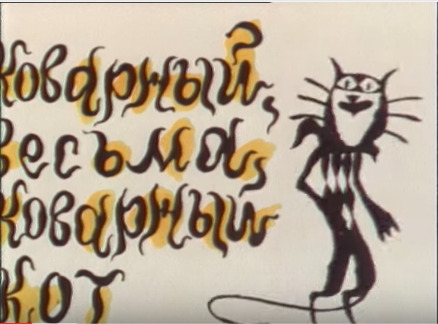 Коварный,
весьма,
коварный
кот